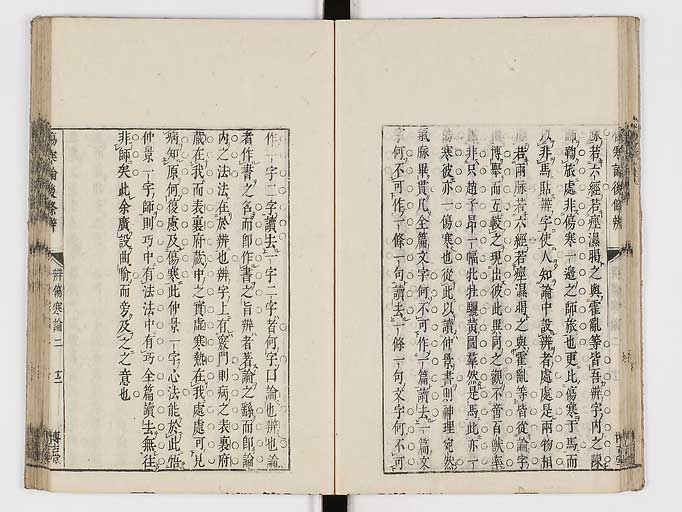 脉若六經若痙濕暍之與霍亂等皆吾辨字內之陳
師鞠旅處非傷寒一邉之師旅也更此傷寒于馬而
以非馬貼辨字使人知論中設辨者處處是兩物相
若兩脉若六經若痙濕暍之與霍亂等皆從論字
博舉而互較之現出彼此異同之觀不啻百獸率
非只趙子昻一幅牝牡驪黃圖葢然是馬此亦一
傷寒彼亦一傷寒也從此以讀仲景書則神理宛然
氣脉畢貫凡全篇文字何不可作一篇讀去一篇文
字何不可作一條一句讀去一條一句文字何不可
作一字二字讀去一字二字者何字曰論也辨也論
者作書之名而卽作書之旨辨者著論之繇而卽論
內之法法在於辨也辨字上有竅門則病之表裏府
藏在我而表裏府藏中之實虛寒熱在我處處可見
病知原何復慮及傷寒此仲景一字心法能於此悟
仲景一字師則巧中有法法中有巧全篇讀去無往
非師矣此余廣設曲喻而旁及之之意也
傷寒論後條辨
辨傷寒論二